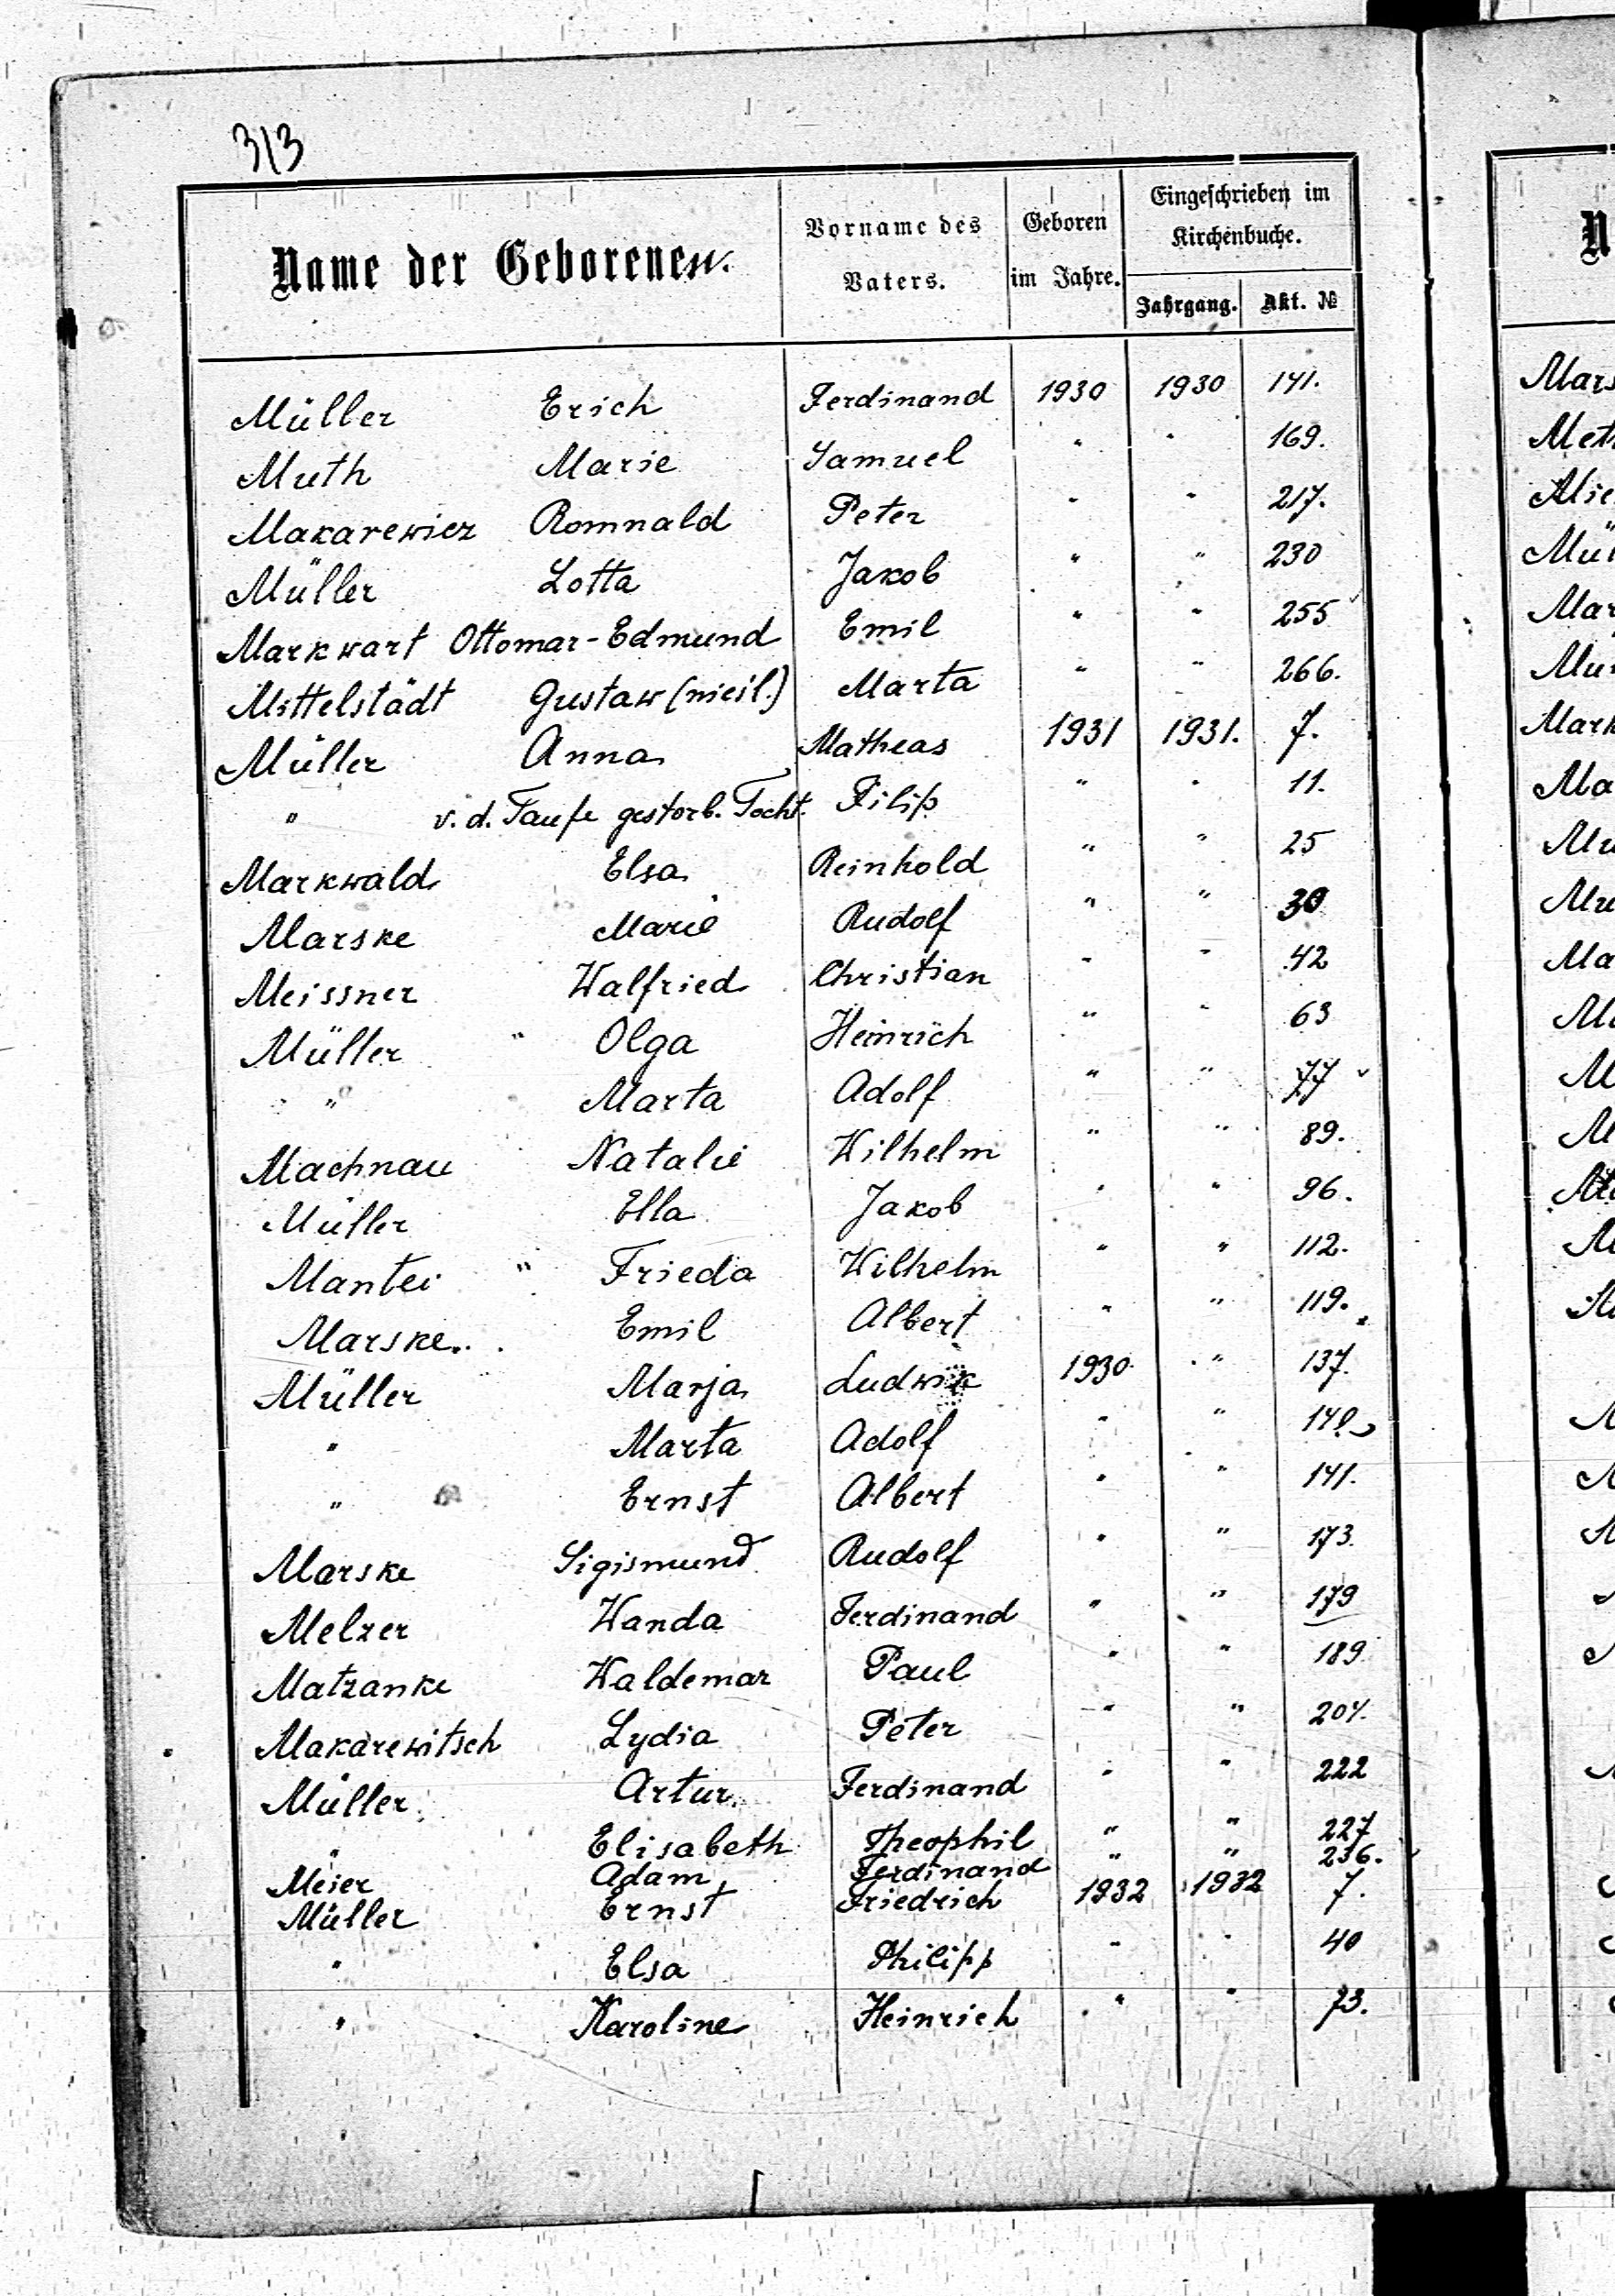 313
Name der Geborenen. Vorname des Vaters. Geboren im Jahre. Eingeschrieben im Kirchenbuche.
Jahrgang. Akt. №
Müller Erich Ferdinand 1930 1930 141.
Muth Marie Samuel " " 169.
Makarewicz Romnald Peter " " 217.
Müller Lotta Jakob " " 230
Markwart Ottomar-Edmund Emil " " 255
Mittelstädt Gustaw (nieśl.) Marta " " 266.
Müller Anna Matheas 1931 1931. 7.
" v. d. Taufe gestorb. Tocht. Filip " " 11.
Markwald Elsa Reinhold " " 25
Marske Marie Rudolf " " 30
Meissner Walfried Christian " " 42
Müller " Olga Heinrich " " 63
" Marta Adolf " " 77
Machnau Natalie Wilhelm " " 89.
Müller Ella Jakob " " 96.
Mantei " Frieda Wilhelm " " 112.
Marske Emil Albert " " 119.
Müller Marja Ludwik 1930 " 137.
" Marta Adolf " "
" Ernst Albert " " 141.
Marske Sigismund Rudolf " " 173.
Melzer Wanda Ferdinand " " 179
Matzanke Waldemar Paul " " 189
Makarewitsch Lydia Peter " "
Müller Artur Ferdinand " " 222
" Elisabeth Theophil " " 227
Meier Adam Ferdinand " " 236.
Müller Ernst Friedrich 1932 1932 7.
" Elsa Philipp " " 40
" Karoline Heinrich " " 73.
N
Mars
Met
Mie
Mül
Mar
Mark
Ma
Ma